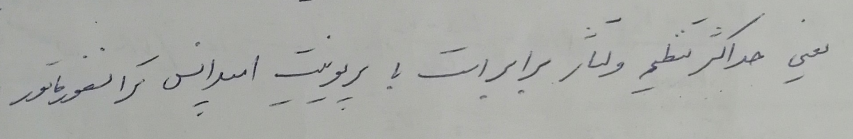 یعنی حداکثر تنظیم ولتاژ برابر است با پریونیت امپدانس ترانسفورماتور